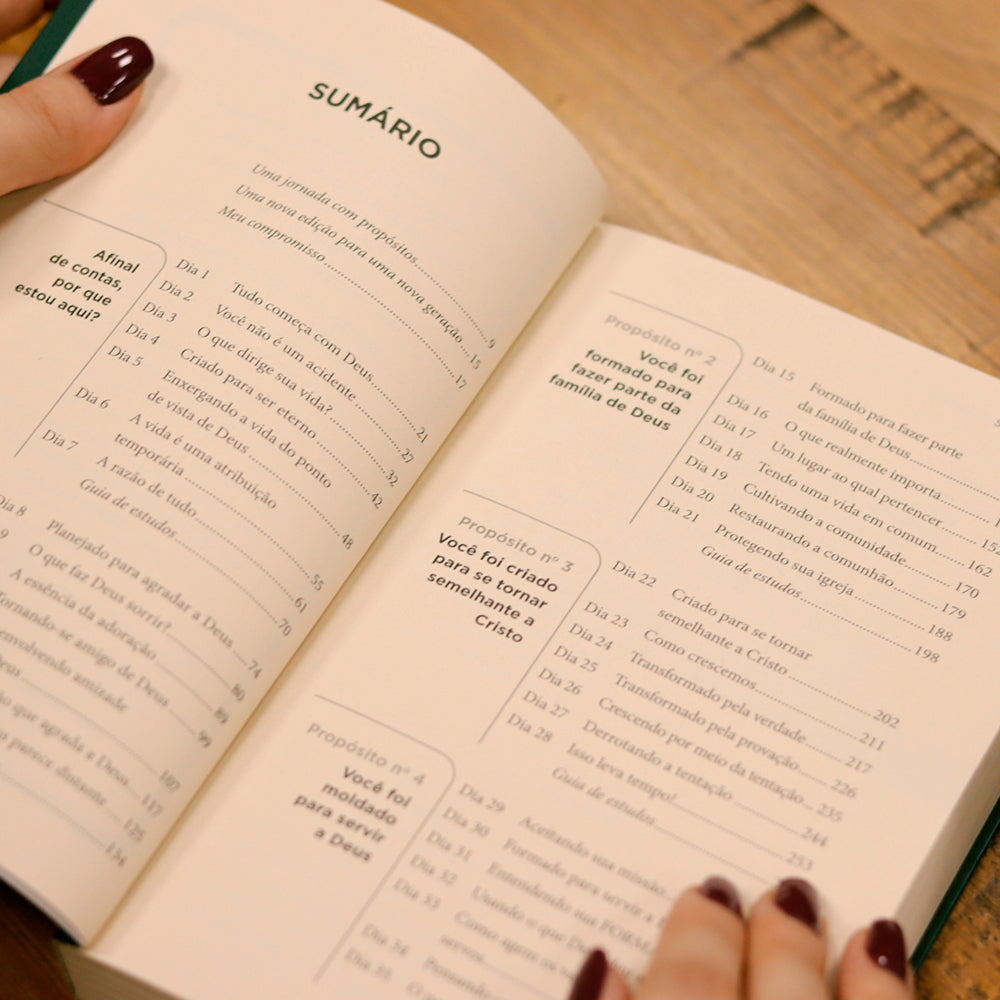 SUMÁRIO
Uma jornada com propósitos........9
Uma nova edição para uma nova geração....15
Meu compromisso........17
Afinal
de contas,
por que
estou aqui?
Dia 1 Tudo começa com Deus........21
Dia 2 Você não é um acidente........27
Dia 3 O que dirige sua vida?........32
Dia 4 Criado para ser eterno........42
Dia 5 Enxergando a vida do ponto
de vista de Deus........48
Dia 6 A vida é uma atribuição
temporária........55
Dia 7 A razão de tudo........61
Guia de estudos........70
Dia 8 Planejado para agradar a Deus....74
9 O que faz Deus sorrir?........80
A essência da adoração........89
Tornando-se amigo de Deus........99
envolvendo amizade
Deus........107
que agrada a Deus........117
parece distante........125
134
Propósito nº 2
Você foi
formado para
fazer parte da
família de Deus
Dia 15 Formado para fazer parte
da família de Deus........
Dia 16 O que realmente importa........
Dia 17 Um lugar ao qual pertencer........
Dia 18 Tendo uma vida em comum........162
Dia 19 Cultivando a comunidade........170
Dia 20 Restaurando a comunhão........179
Dia 21 Protegendo sua igreja........188
Guia de estudos........198
Propósito nº 3
Você foi criado
para se tornar
semelhante a
Cristo
Dia 22 Criado para se tornar
semelhante a Cristo........202
Dia 23 Como crescemos........211
Dia 24 Transformado pela verdade........217
Dia 25 Transformado pela provação........226
Dia 26 Crescendo por meio da tentação....235
Dia 27 Derrotando a tentação........244
Dia 28 Isso leva tempo!........253
Guia de estudos........
Propósito nº 4
Você foi
moldado
para servir
a Deus
Dia 29 Aceitando sua missão
Dia 30 Formado para servir a
Dia 31 Entendendo sua FORMA
Dia 32 Usando o que
Dia 33 Como agem os
servos
Dia 34
Dia 35